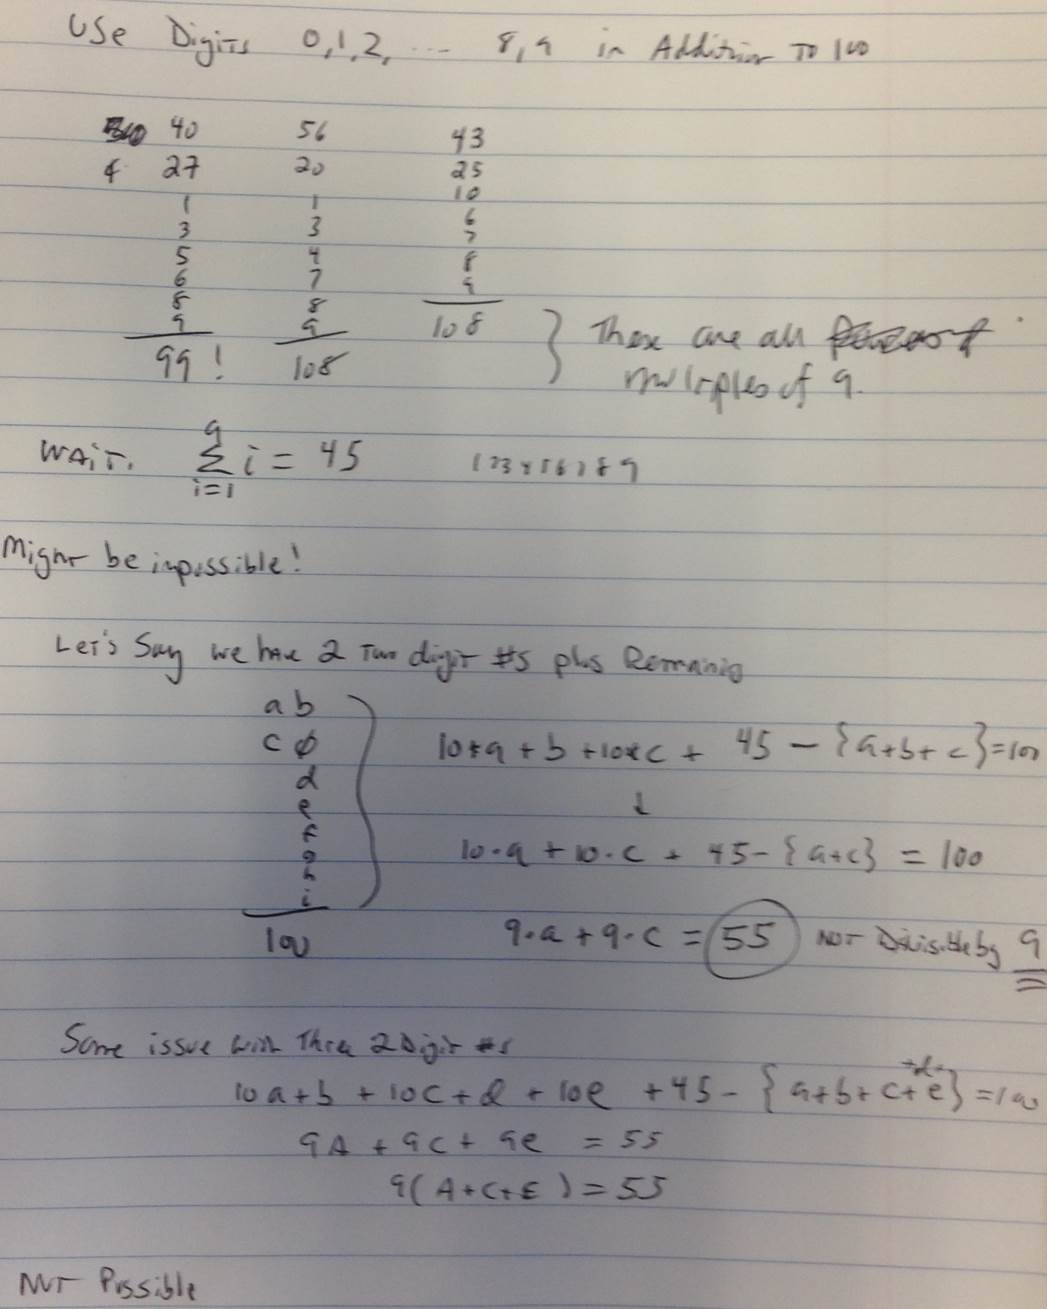 Use Digits 0,1,2, ... 8,9 in Addition To 100
40 56 43
& 27 20 25
10
1 1 6
3 3 7
5 4 8
6 7 9
8 8
9 9
99! 108 108 } These are all
multiples of 9.
WAIT. 9 Σ i=1 i = 45 123456789
Might be impossible!
Let's Say we have 2 Two digit #s plus Remaining
ab
cφ 10*a + b + 10*c + 45 - {a+b+c} = 100
d ↓
e
f 10·a + 10·c + 45 - {a+c} = 100
g
h
i
100 9·a + 9·c = 55 NOT Divisible by 9
Same issue with Three 2 Digit #s
10a+b + 10c+d + 10e + 45 - {a+b+c+d+e} = 100
9A + 9c + 9e = 55
9(A+C+E) = 55
NOT Possible